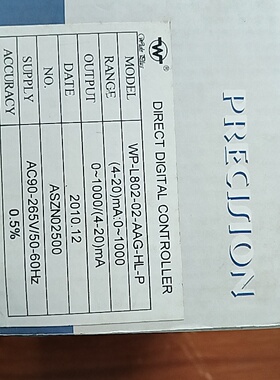 W®
DIRECT DIGITAL CONTROLLER
MODEL WP-L802-02-AAG-HL-P
RANGE (4-20)mA:0~1000
OUTPUT 0~1000/(4-20)mA
DATE 2010.12
NO. ASZN02500
SUPPLY AC90-265V/50-60Hz
ACCURACY 0.5%
PRECISION